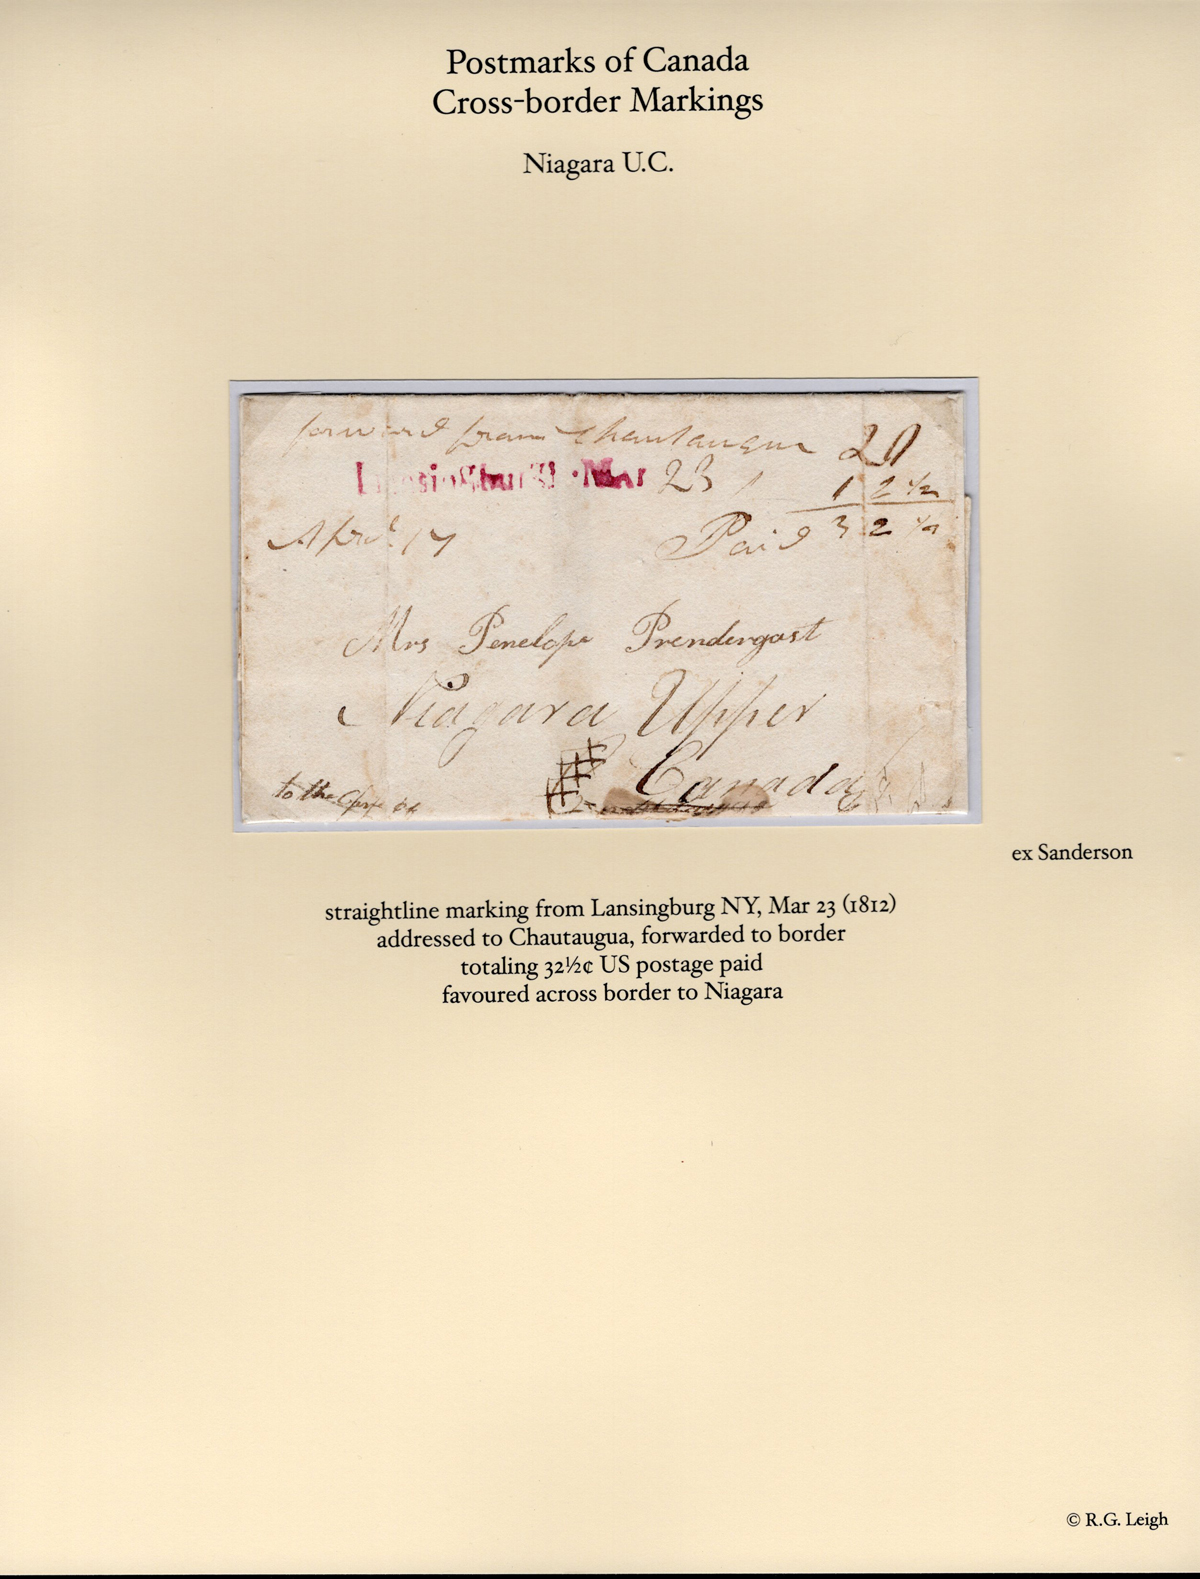 Postmarks of Canada
Cross-border Markings
Niagara U.C.
forward from Chautauqua 20
Lansingburgh Mar 23 12 ½
Apr. 17 Paid 32 ½
Mrs Penelope Prendergast
Niagara Upper
Canada
to the Care of
ex Sanderson
straightline marking from Lansingburg NY, Mar 23 (1812)
addressed to Chautaugua, forwarded to border
totaling 32½¢ US postage paid
favoured across border to Niagara
© R.G. Leigh